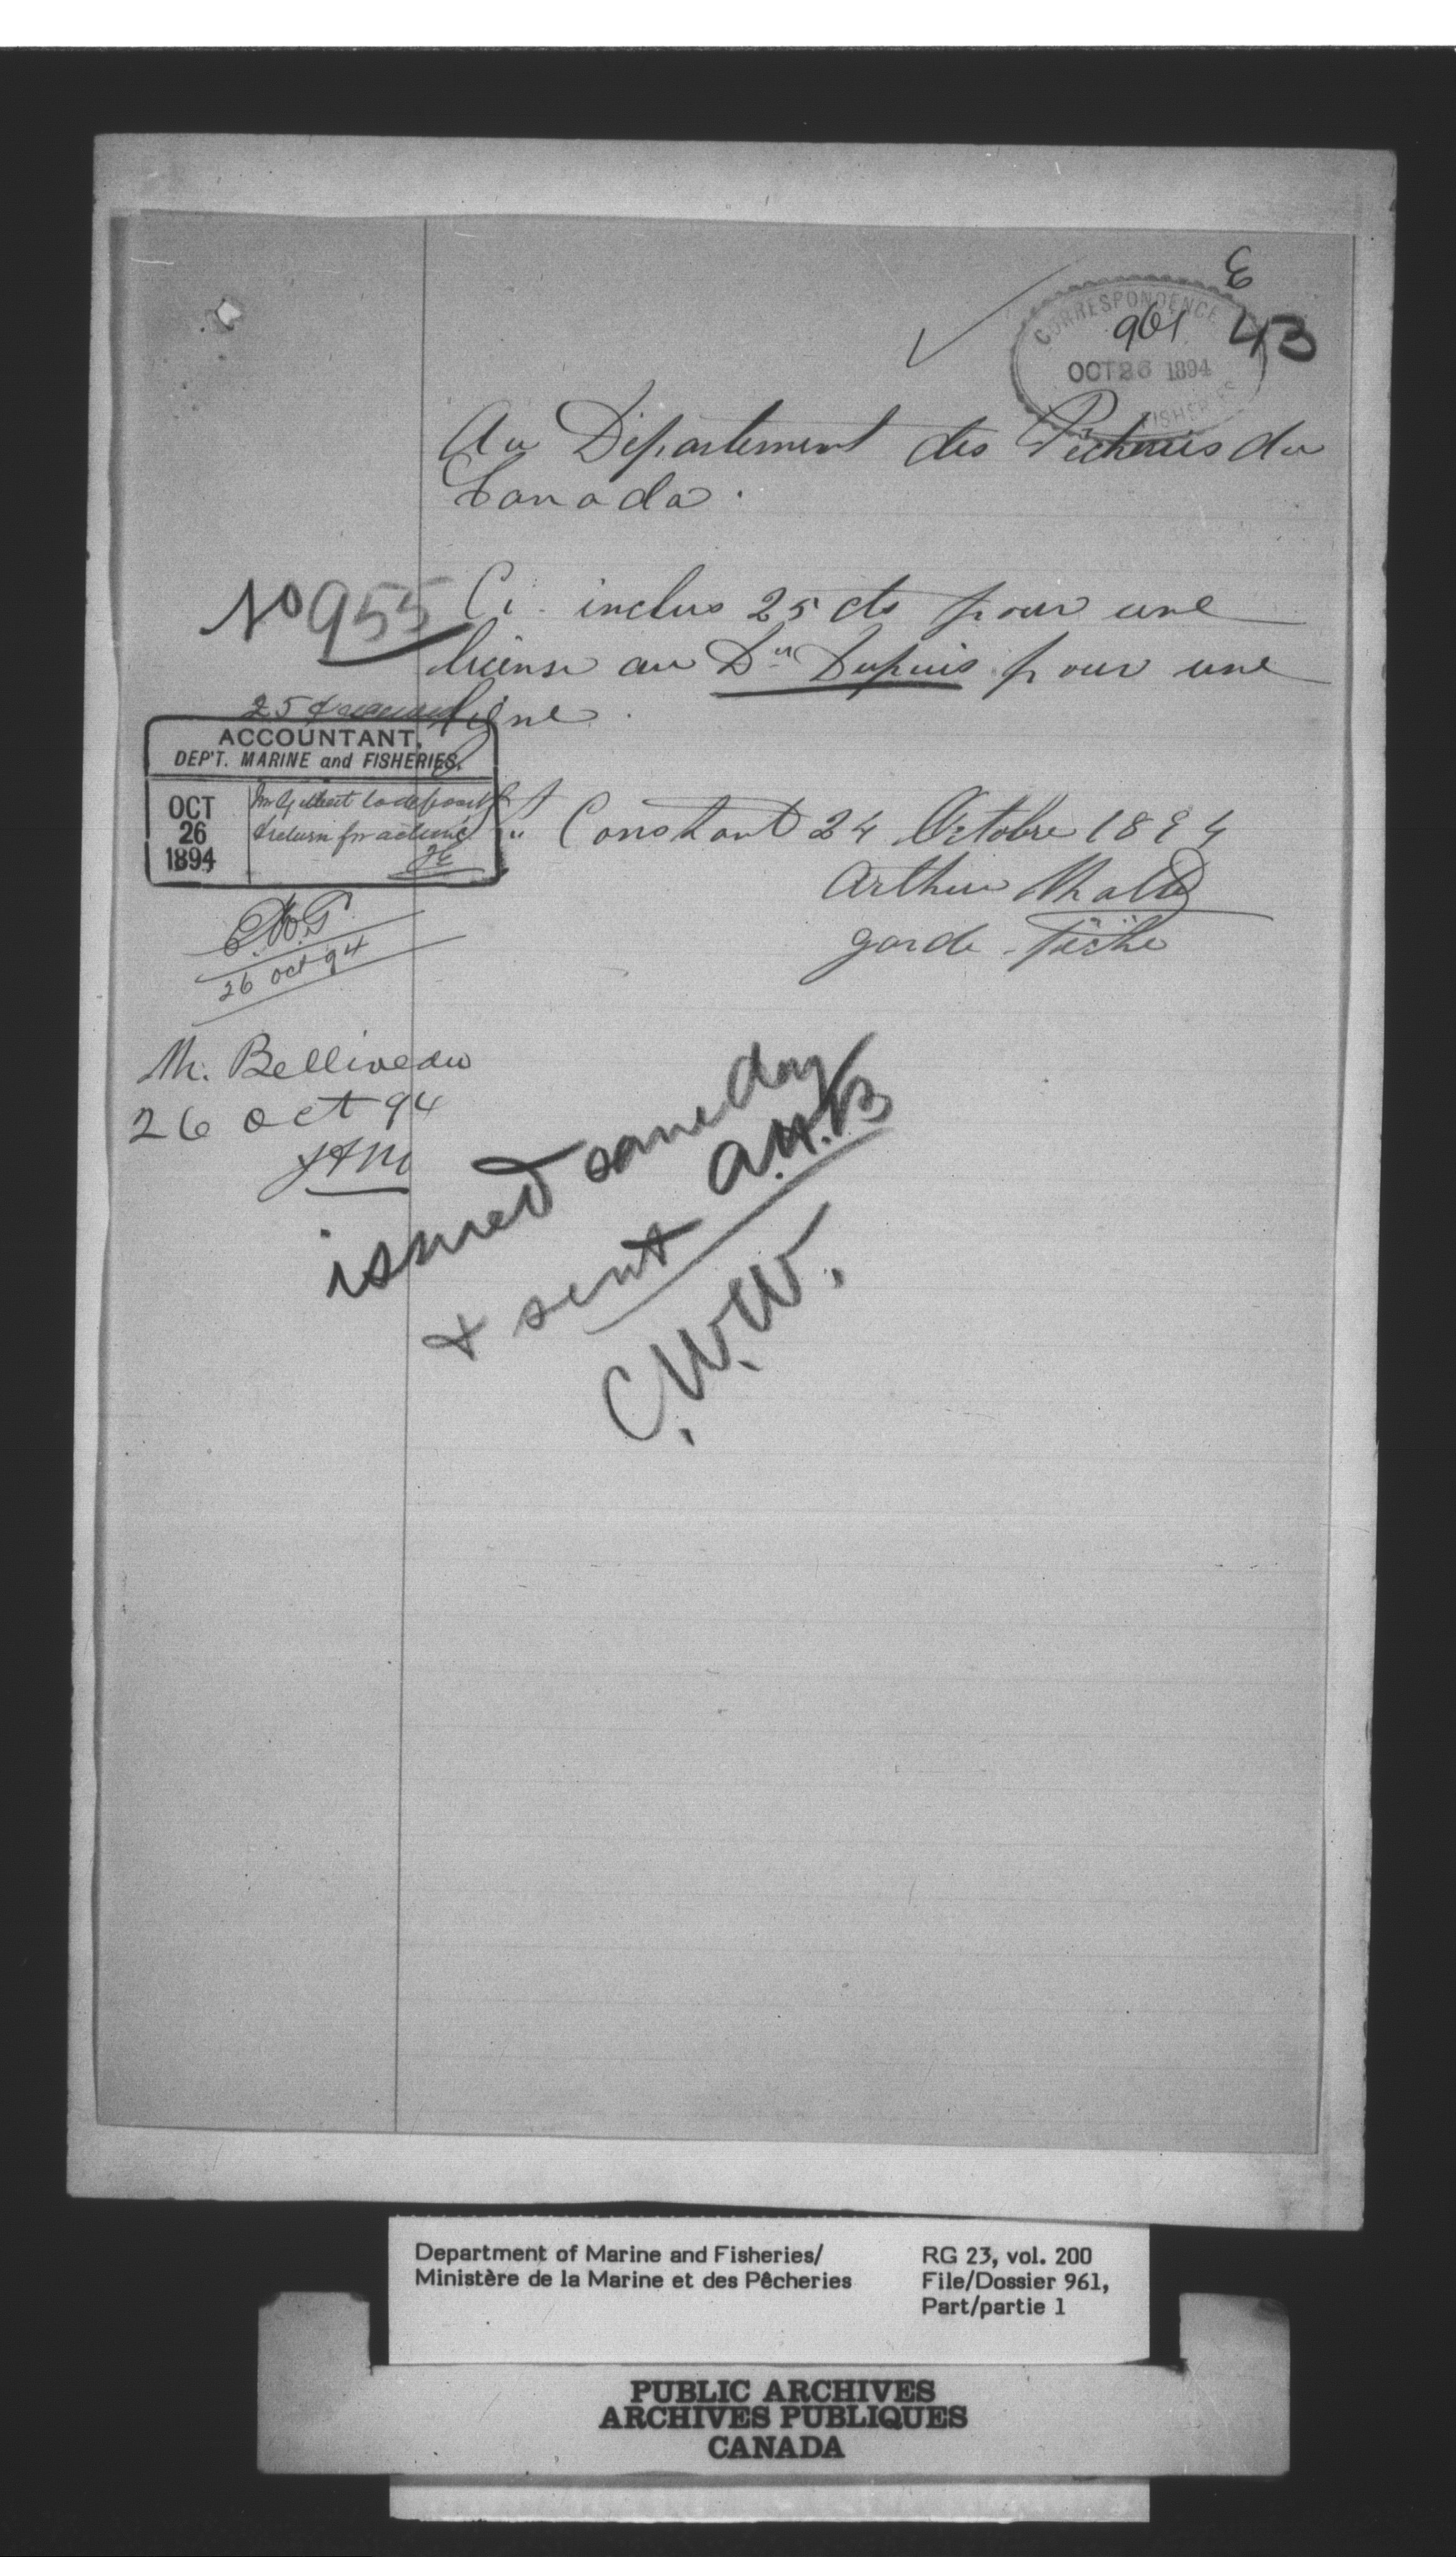 E
43
CORRESPONDENCE
961
OCT 26 1894
FISHERIES
Au Département des Pêcheries du
Canada.
No 955
Ci inclus 25 cts pour une
license au Dr Dupuis pour une
ligne.
25
ACCOUNTANT,
DEP'T. MARINE and FISHERIES.
OCT
26
1894
Mr Gilbert to deposit
& return for action
St Constant 24 Octobre 1894
Arthur
garde-Pêche
26 oct 94
Mr. Belliveau
26 oct 94
issued same day
& sent A.H.B
C.W.W.
Department of Marine and Fisheries/
Ministère de la Marine et des Pêcheries
RG 23, vol. 200
File/Dossier 961,
Part/partie 1
PUBLIC ARCHIVES
ARCHIVES PUBLIQUES
CANADA